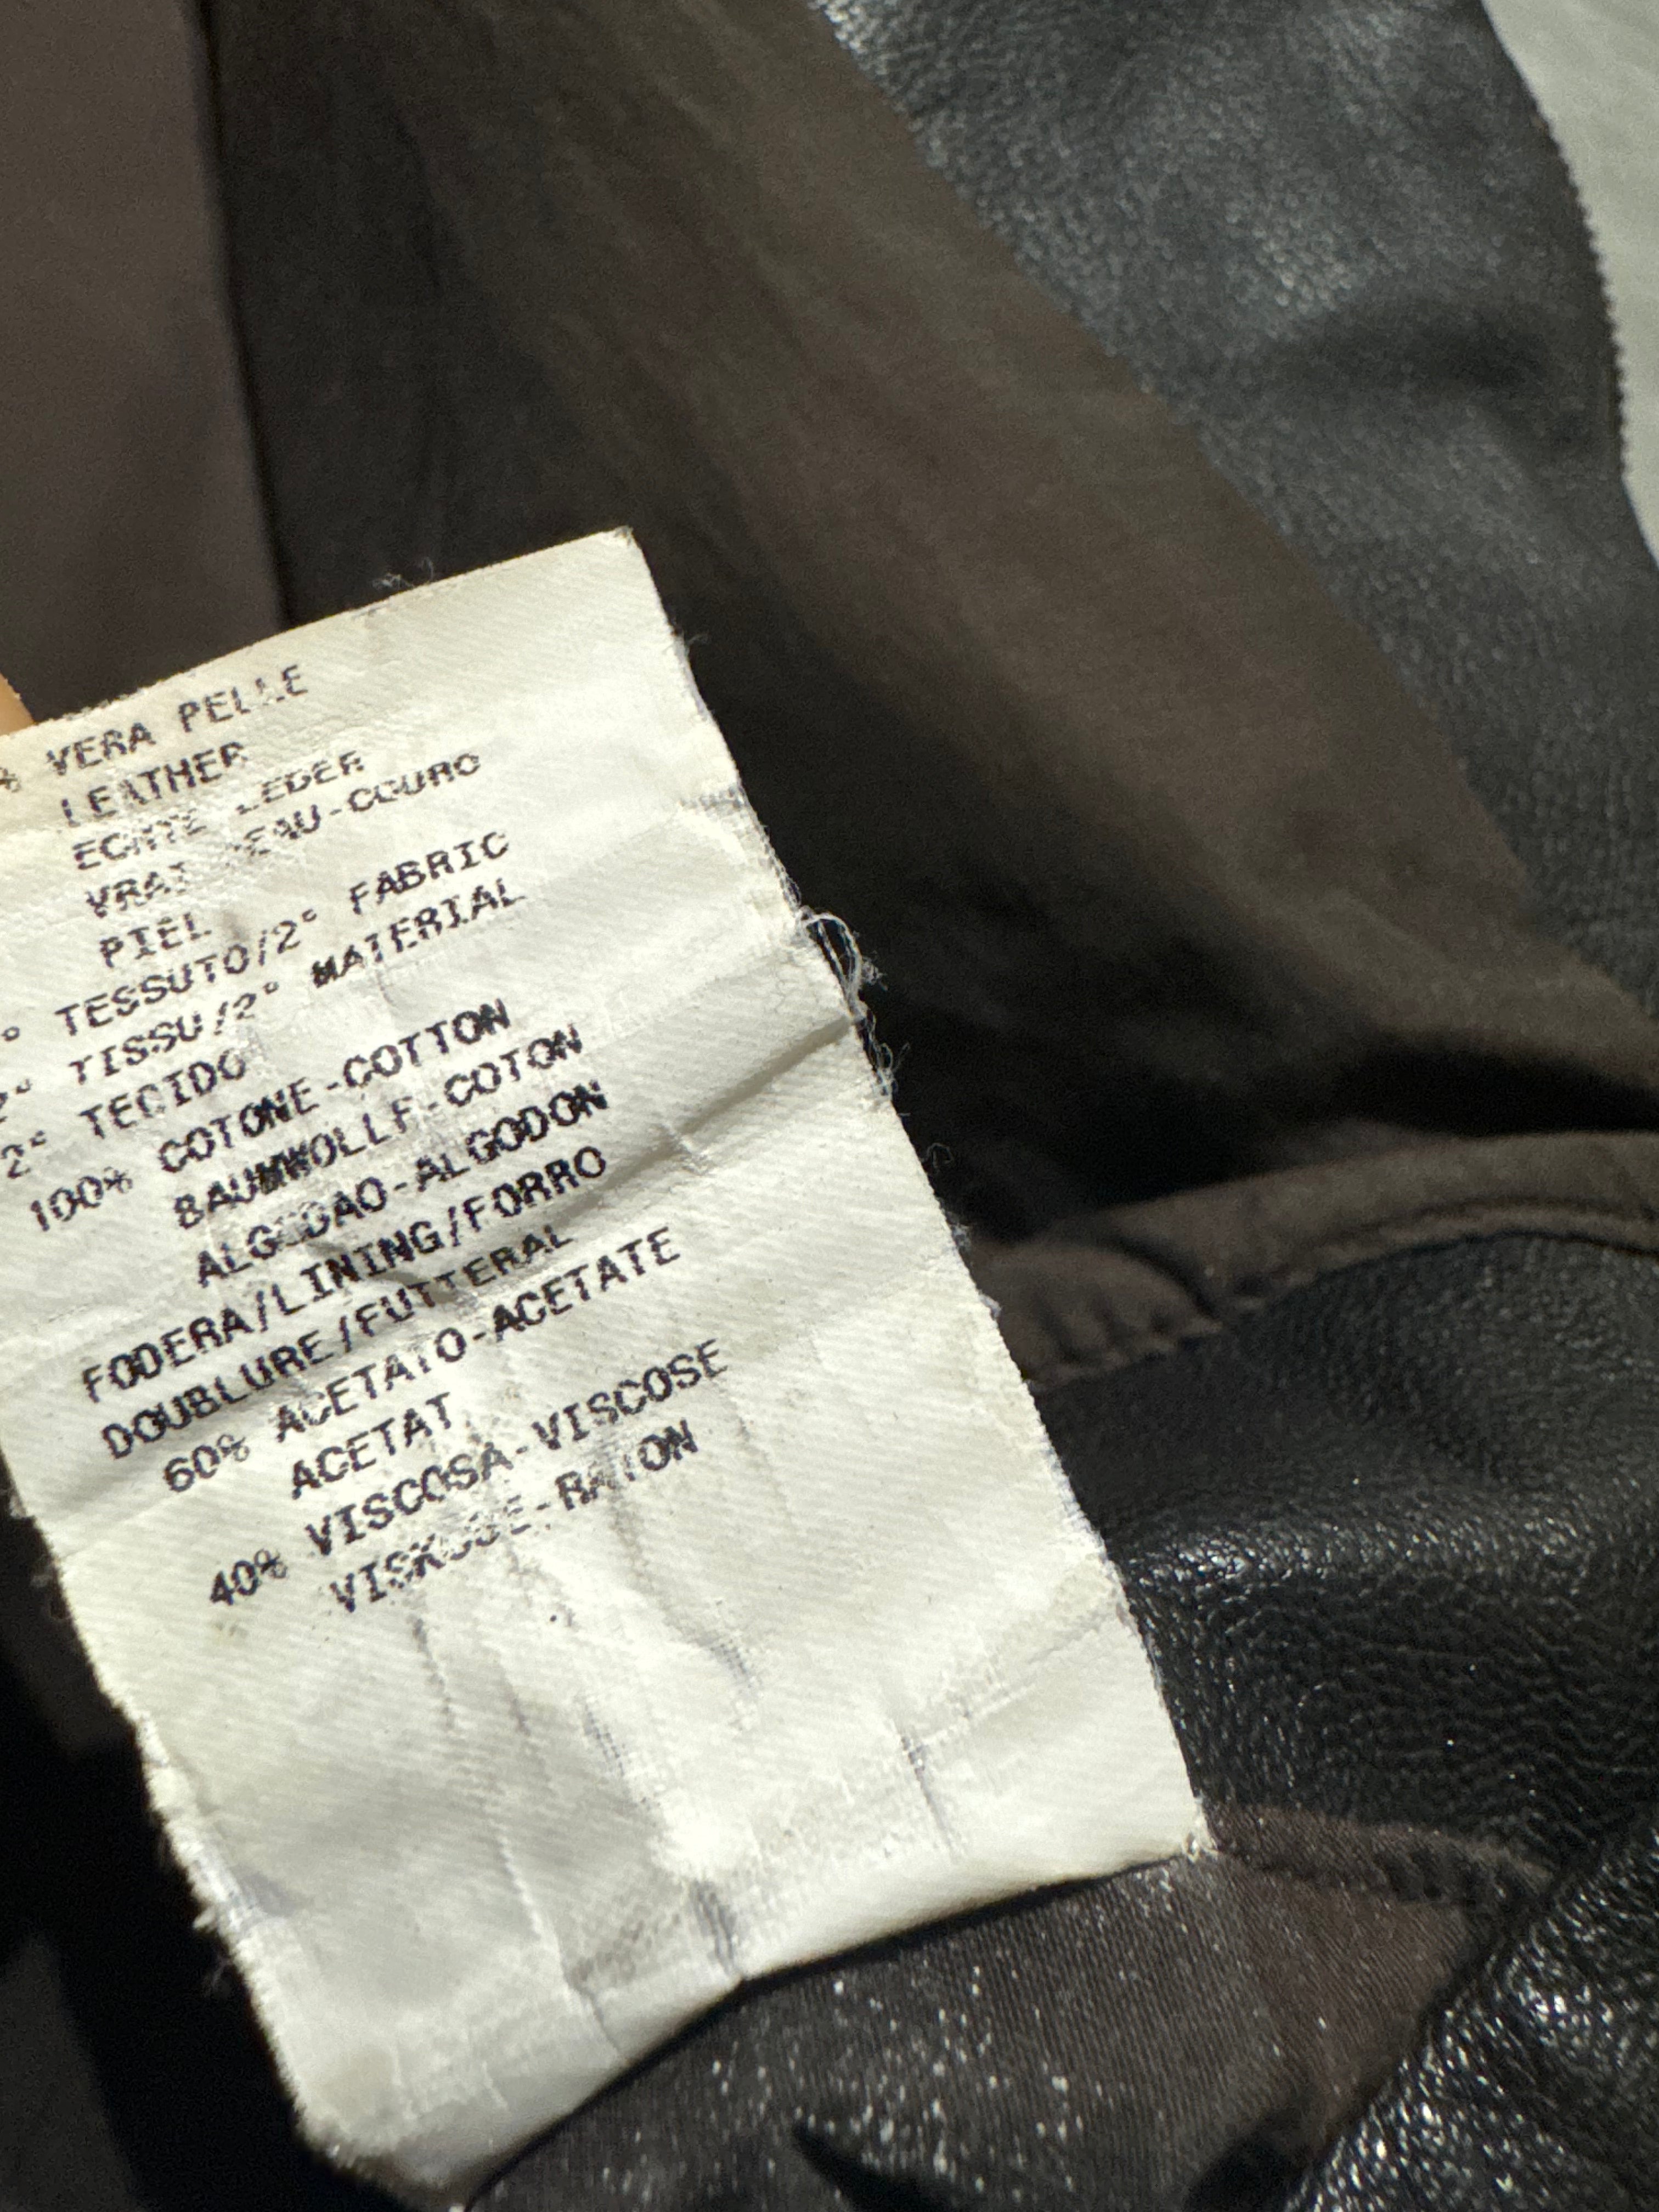 % VERA PELLE
LEATHER
ECHTE LEDER
VRAI PEAU-COURO
PIEL
2° TESSUTO/2° FABRIC
2° TISSU/2° MATERIAL
2° TECIDO
100% COTONE-COTTON
BAUMWOLLE-COTON
ALGODAO-ALGODON
FODERA/LINING/FORRO
DOUBLURE/FUTTERAL
60% ACETATO-ACETATE
ACETAT
40% VISCOSA-VISCOSE
VISKOSE-RAYON